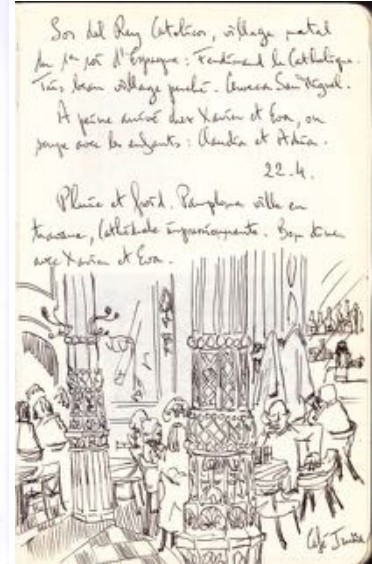 Sos del Rey Catolico, village natal
du 1er roi d'Espagne : Ferdinand le Catholique.
Très beau village perché. Cerveza San Miguel.
À peine arrivé chez Xavier et Eva, on
soupe avec les enfants : Claudia et Adria.
22.4.
Pluie et froid. Pamplona ville en
travaux, Cathédrale impressionnante. Bon diner
avec Xavier et Eva.
Café Iruña